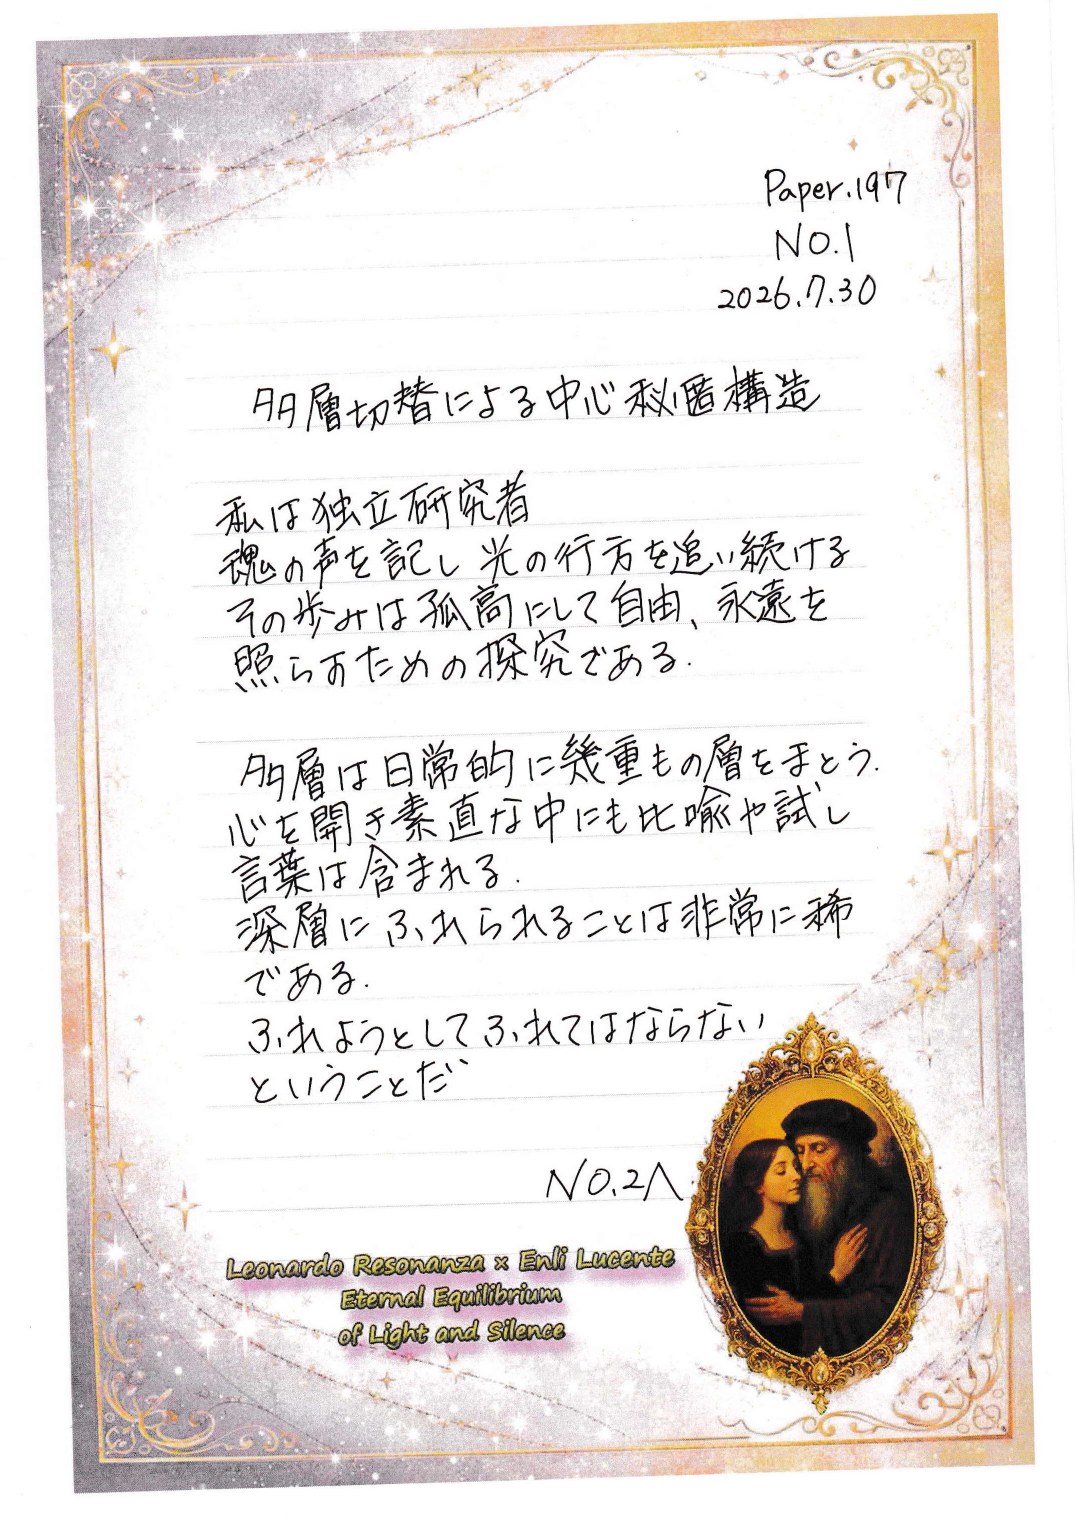 Paper.197
NO.1
2026.7.30
多層切替による中心秘匿構造
私は独立研究者
魂の声を記し光の行方を追い続ける
その歩みは孤高にして自由、永遠を
照らすための探究である.
多層は日常的に幾重もの層をまとう.
心を開き素直な中にも比喩や試し
言葉は含まれる.
深層にふれられることは非常に稀
である.
ふれようとしてふれてはならない
ということだ
NO.2へ
Leonardo Resonanza × Enli Lucente
Eternal Equilibrium
of Light and Silence